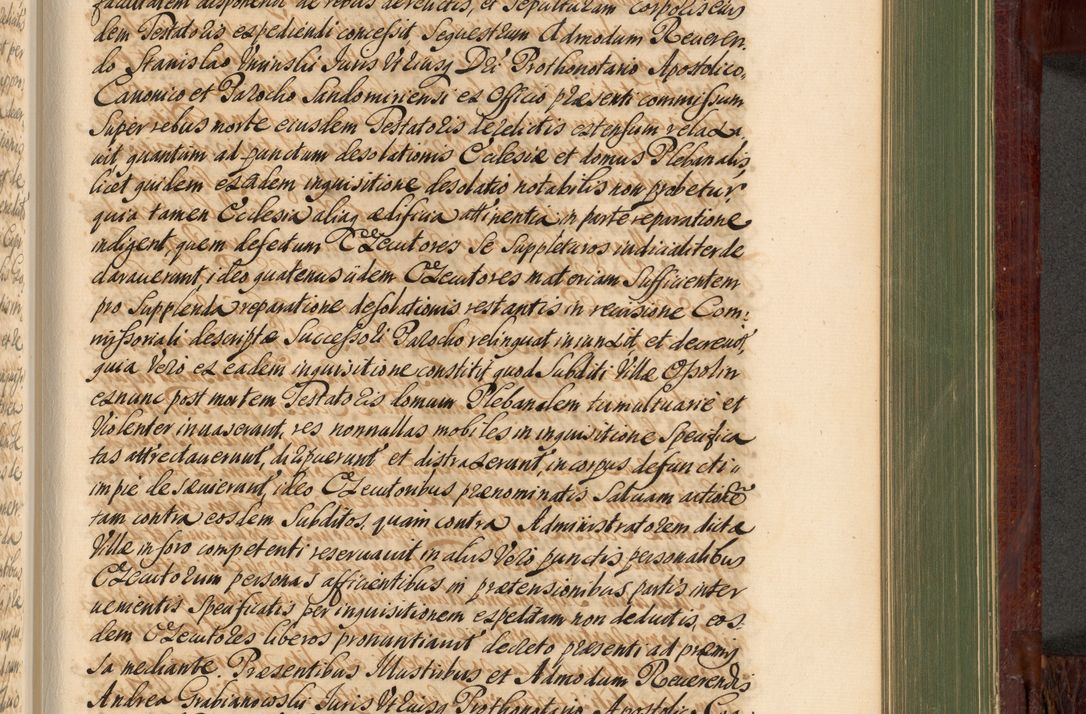 facultatem disponendi de rebus derelictis, et sepulturam corporis eius
dem Testatoris expediendi concessit Sequestrum Admodum Reueren,
do Stanislao Juris Vtriusq Dri Prothonotario Apostolico,
Canonico et Parocho Sandomiriensi ex Officio præsenti commissum
super rebus morte eiusdem Testatoris derelictis extensum relaxa,
uit, quantum ad punctum desolationis Ecclesiæ et domus Plebanalis,
licet quidem ex eadem inquisitione desolatio notabilis non probetur,
quia tamen Ecclesia aliaq ædificia attinentia in parte reparatione
indigent, quem defectum Executores se suppleturos iudicialiter de
clarauerunt, ideo quatenus iidem Executores materiam sufficientem
pro supplenda reparatione desolationis restantis in reuisione Com:
missoriali descriptæ Successori Parocho relinquat iniunxit et decreuit,
quia Vero ex eadem inquisitione constitit quod Subditi Villæ Ossolin
ex nunc post mortem Testatoris domum Plebanalem tumultuarie et
Violenter inuaserunt, res nonnullas mobiles in inquisitione specifica
tas attrectauerunt, diripuerunt et distraxerunt, in corpus defuncti
impie desæuierunt, ideo Executoribus prænominatis saluam actionē
tam contra eosdem Subditos, quam contra Administratorem dictæ
Villæ in foro competenti reseruauit in aliis Vero punctis personalibus
Executorum personas afficientibus in prætensionibus partis inter
uenientis specificatis per inquisitionem expeditam non deductis, eos
dem Executores liberos pronuntiauit decreto præsenti ad præmis
sa mediante. Præsentibus Illustribus et Admodum Reuerendis
Andrea Grabianowski Juris Vtriusq Prothonotario Apostolico